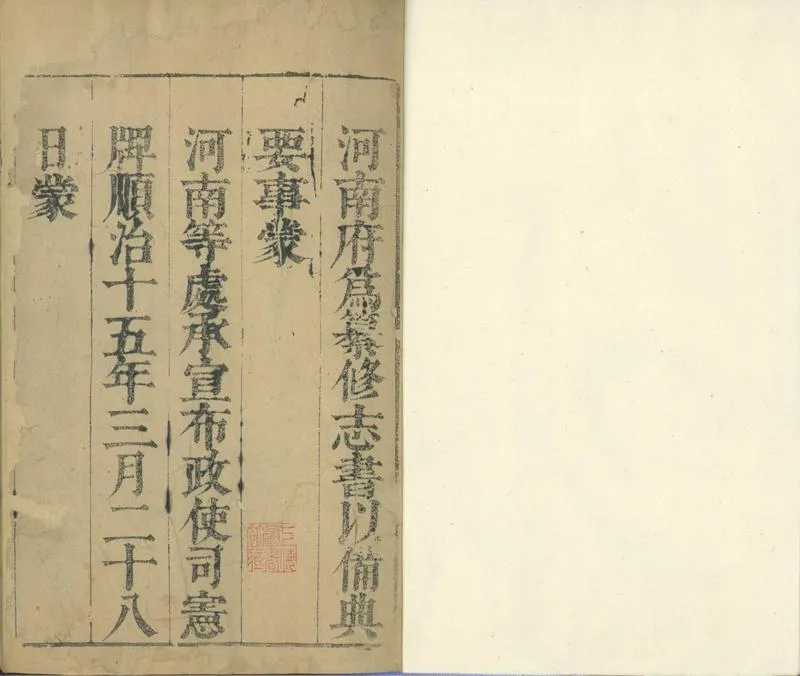 河南府爲纂修志書以備典
要事蒙
河南等處承宣布政使司憲
牌順治十五年三月二十八
日蒙